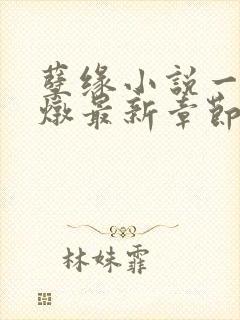 孽缘小说一
燉最新章节
林妹霏